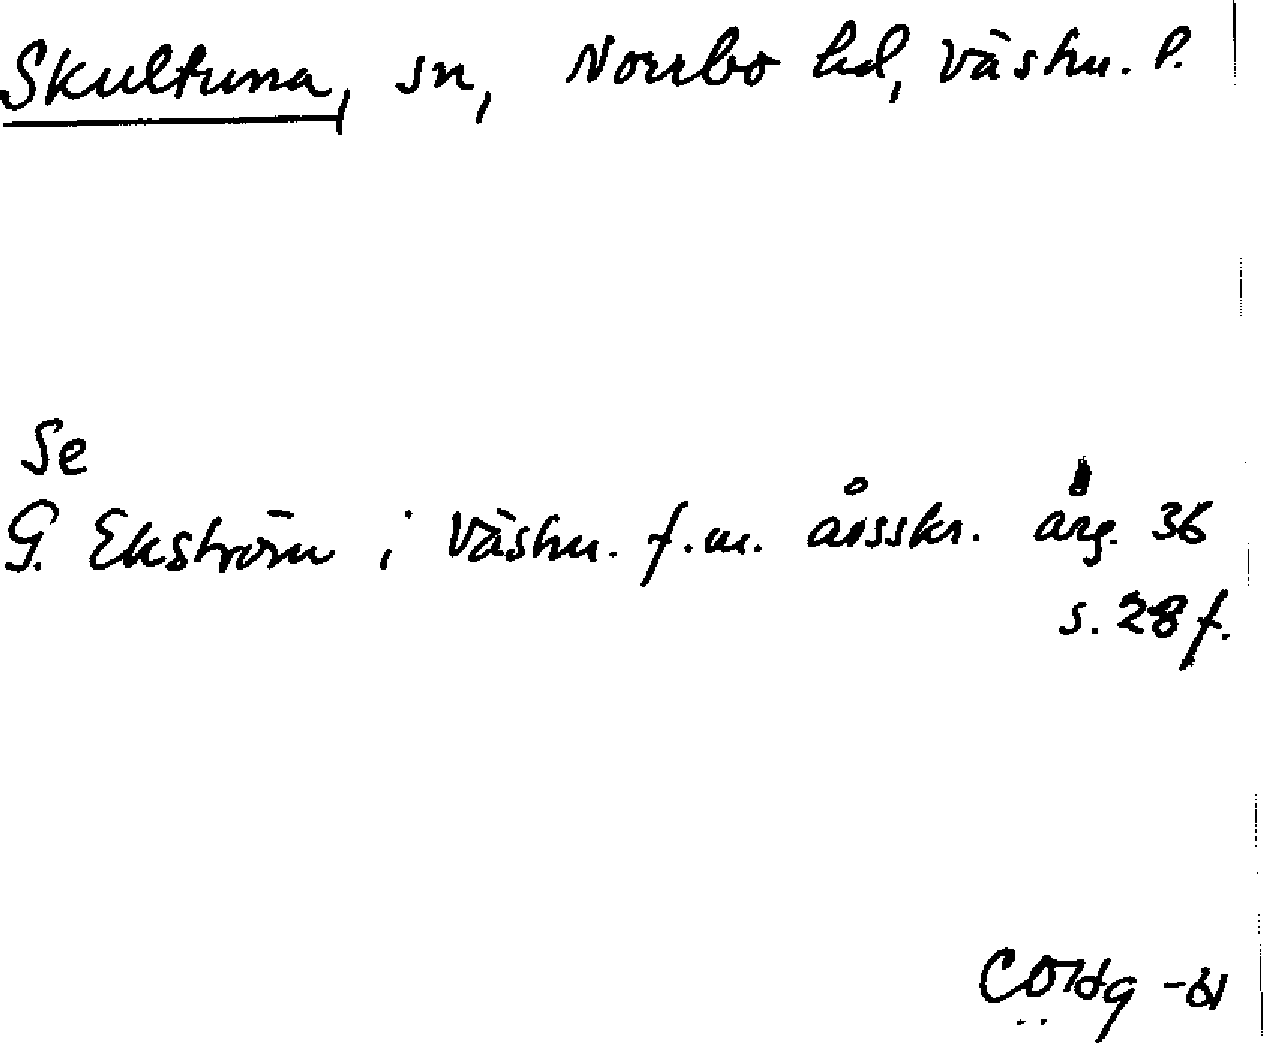 Skultuna, sn, Norrbo hd, Västm. l.
Se
G. Ekström i Västm. f.m. årsskr. årg. 36
s. 28 f.
-61